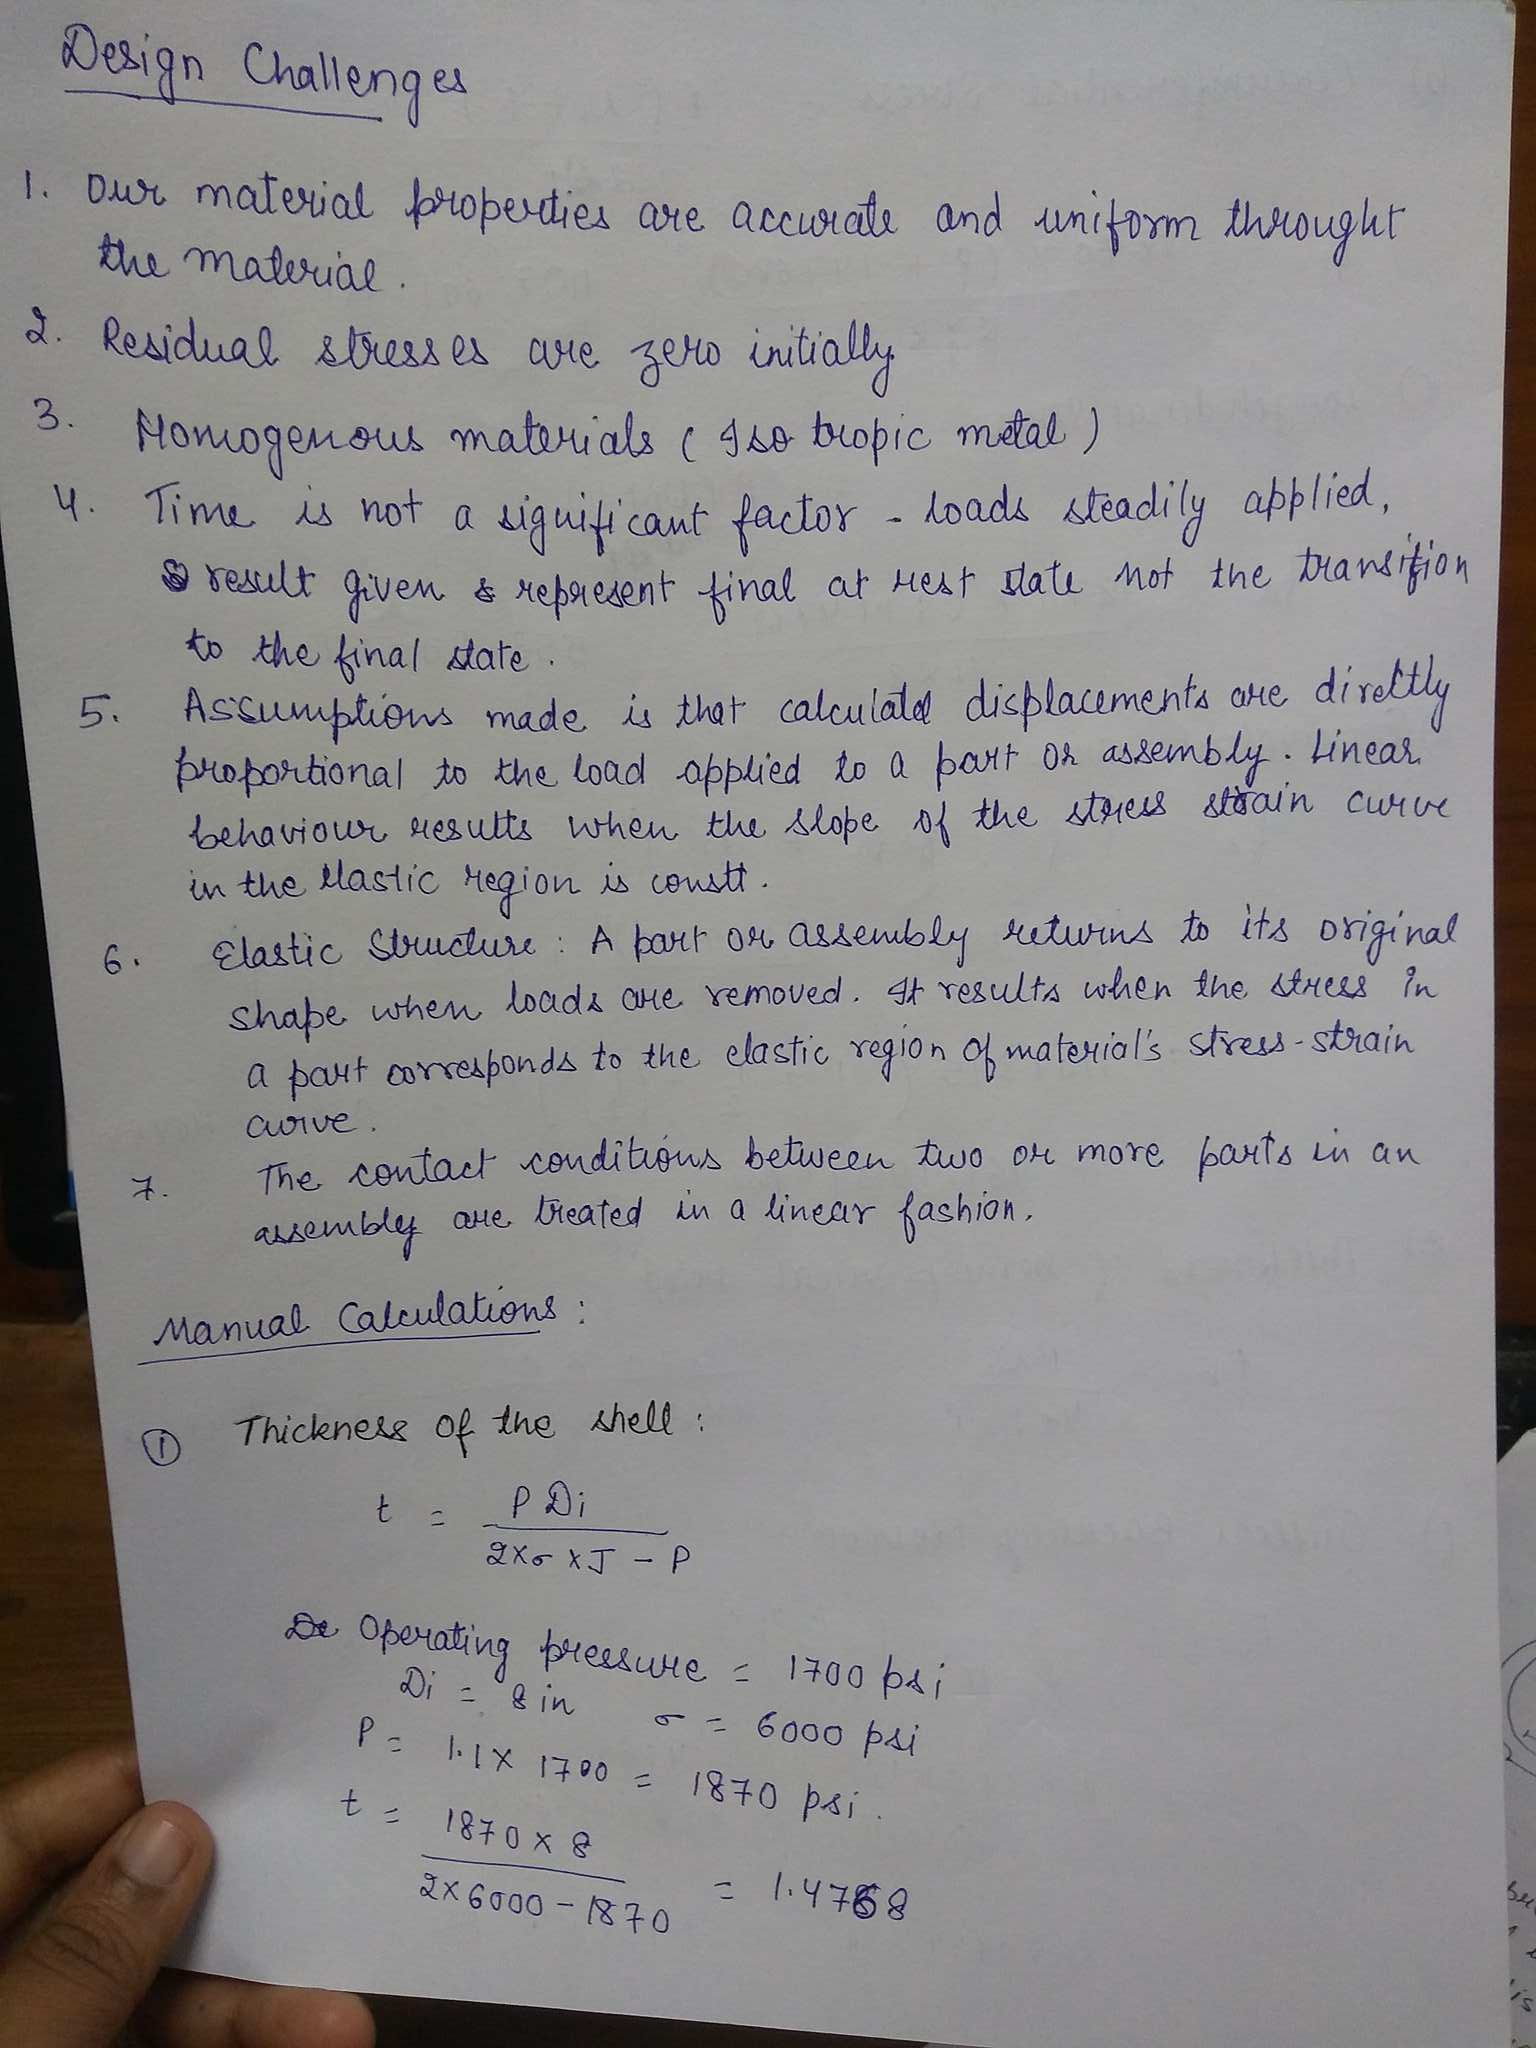 Design Challenges
1. Our material properties are accurate and uniform throught
the material.
2. Residual stresses are zero initially
3. Homogenous materials ( Iso tropic metal )
4. Time is not a significant factor - loads steadily applied,
result given represent final at rest state not the transition
to the final state.
5. Assumptions made is that calculated displacements are directly
proportional to the load applied to a part or assembly. Linear
behaviour results when the slope of the stress strain curve
in the elastic region is constt.
6. Elastic Structure : A part or assembly returns to its original
shape when loads are removed. It results when the stress in
a part corresponds to the elastic region of material's stress-strain
curve.
7. The contact conditions between two or more parts in an
assembly are treated in a linear fashion.
Manual Calculations :
① Thickness of the shell :
t = P Di
2×σ×J - P
Operating pressure = 1700 psi
Di = 8 in σ = 6000 psi
P = 1.1 × 1700 = 1870 psi.
t = 1870 × 8
2×6000 - 1870 = 1.4768